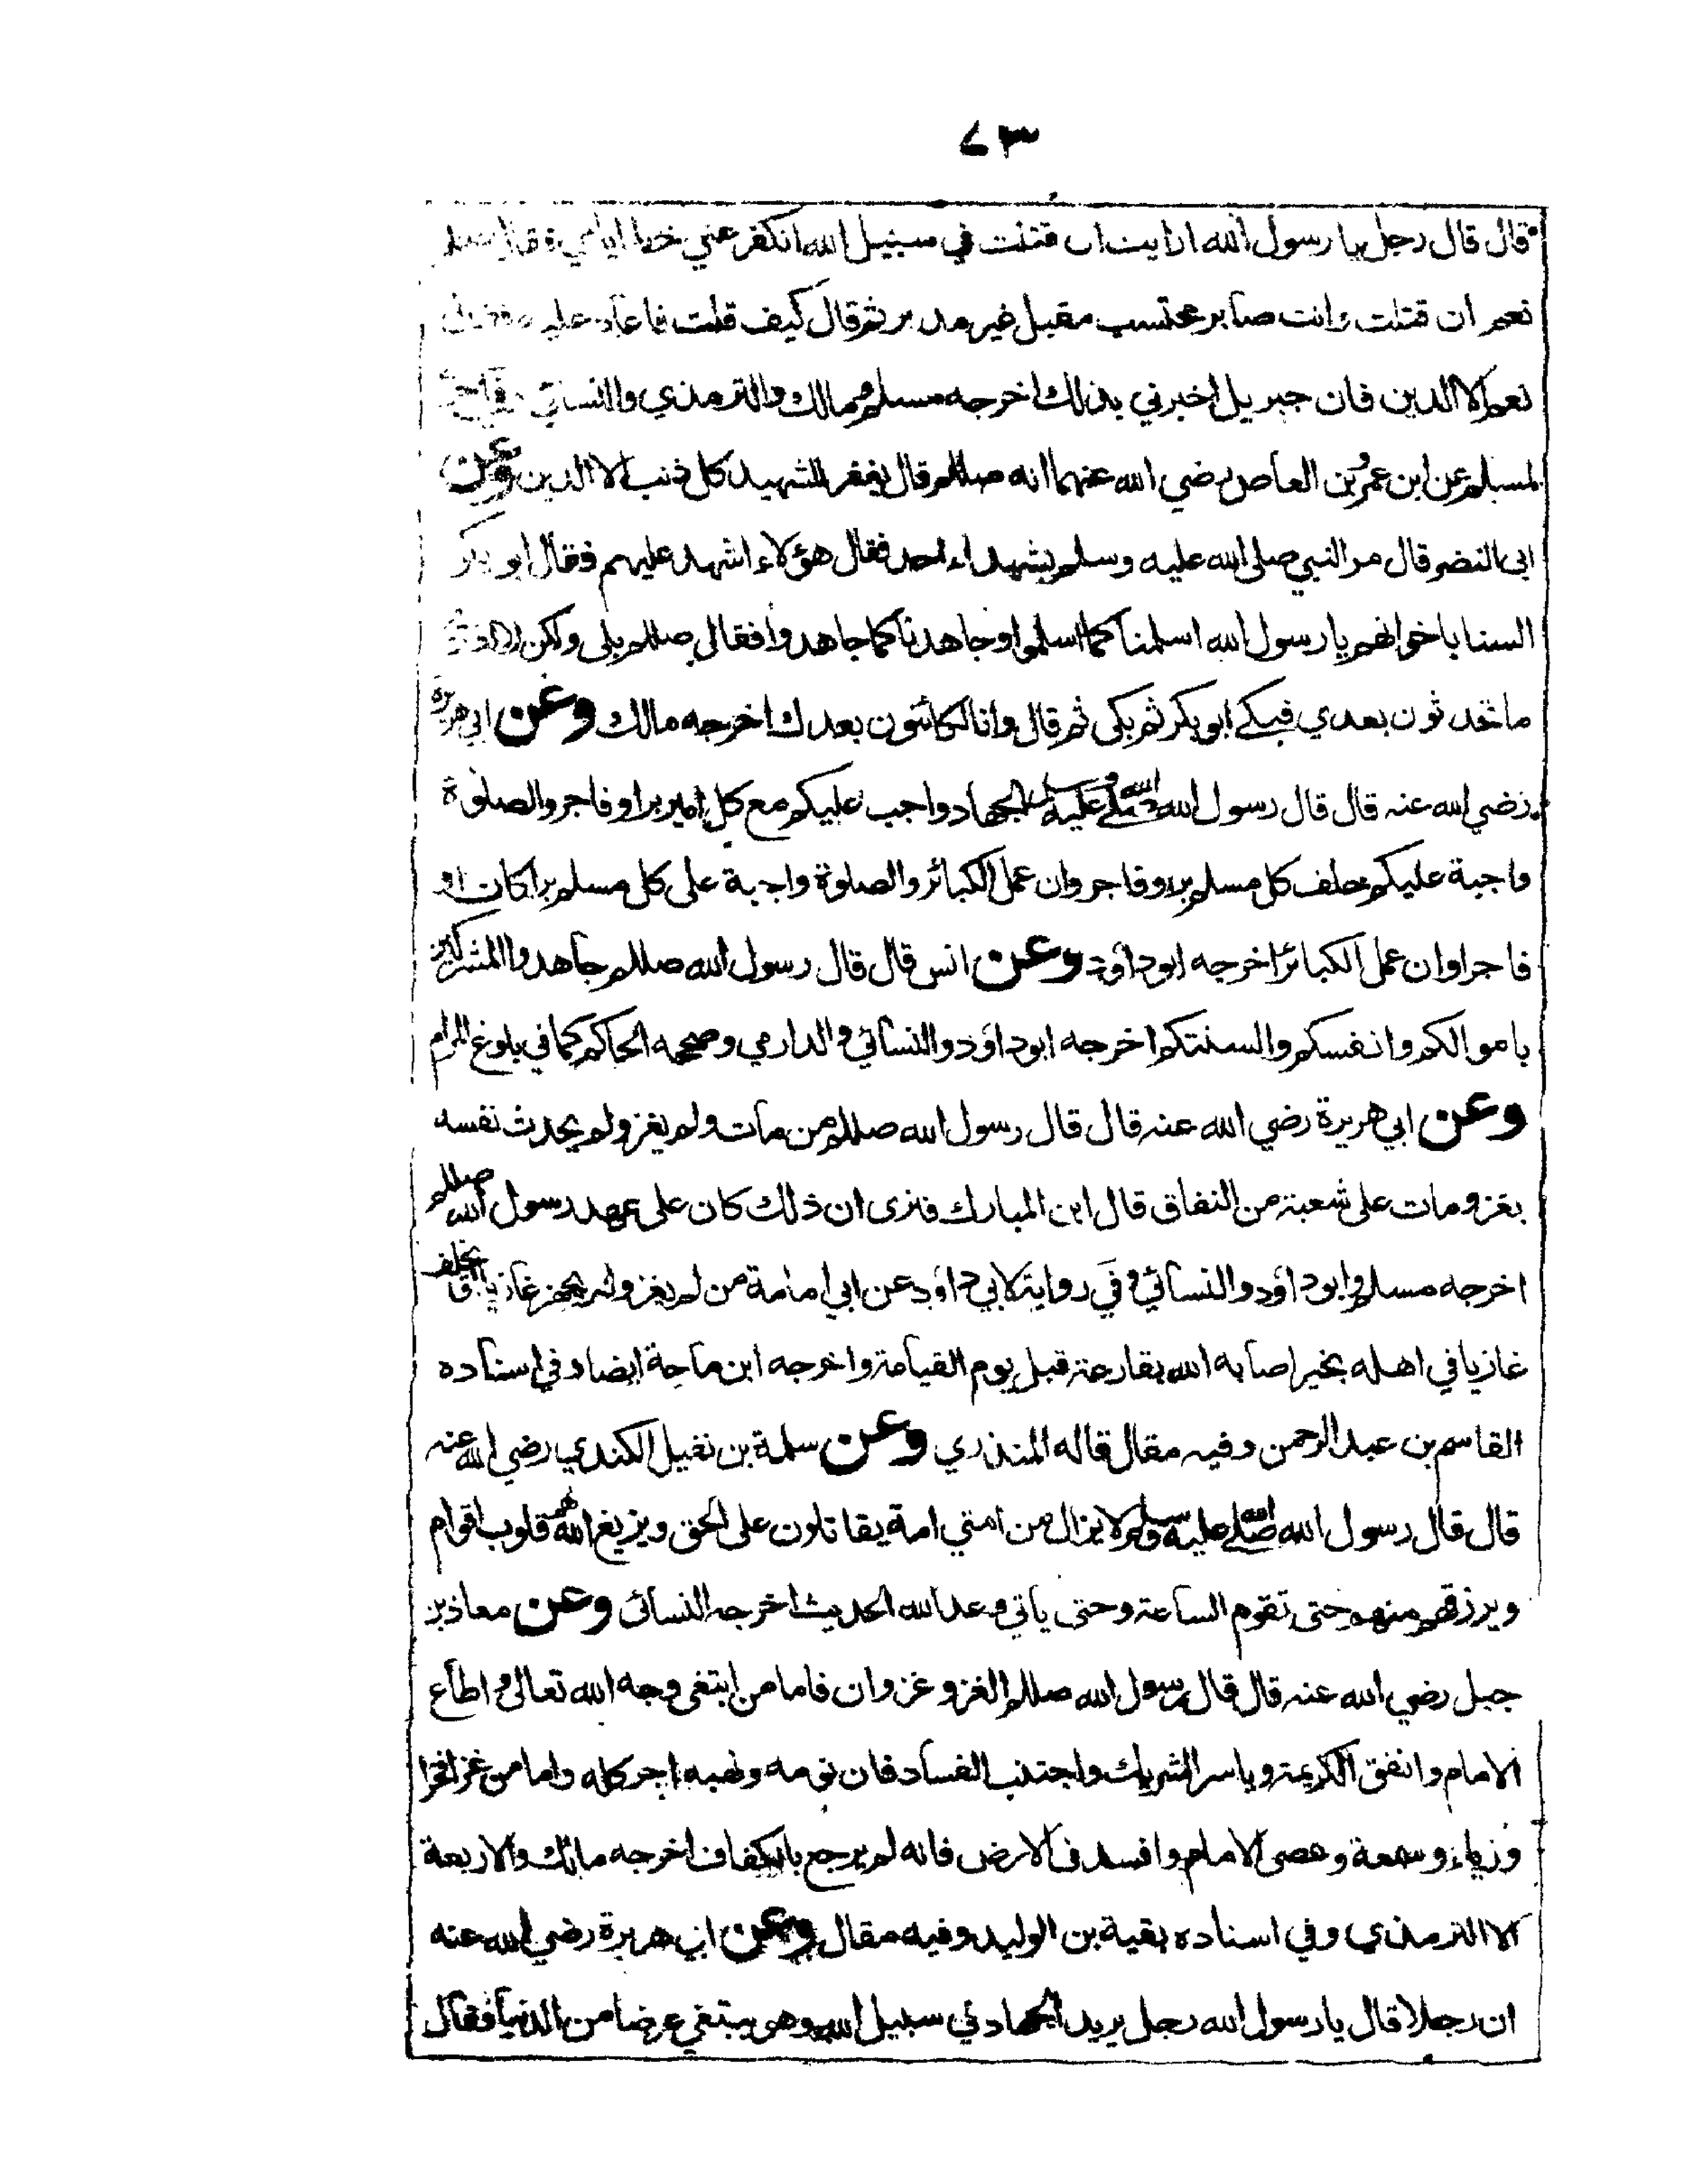 ٧٣
قال قال رجل يا رسول الله ارايت ان قتلت في سبيل الله اتكفر عني خطاياي فقال
نعم ان قتلت وانت صابر محتسب مقبل غير مدبر ثم قال كيف قلت فاعاد عليه فقال
نعم الا الدين فان جبريل اخبرني بذلك اخرجه مسلم ومالك والترمذي والنسائي
لمسلم عن ابن عمرو بن العاص رضي الله عنهما انه صللم قال يغفر للشهيد كل ذنب الا الدين وعن
ابي النضر قال مر النبي صلى الله عليه وسلم بشهداء احد فقال هؤلاء اشهد عليهم فقال ابو بكر
السنا باخوانهم يا رسول الله اسلمنا كما اسلموا وجاهدنا كما جاهدوا فقال صللم بلى ولكن
ما تحدثون بعدي فبكى ابو بكر ثم بكى ثم قال وانا لكائنون بعدك اخرجه مالك وعن ابي هريرة
رضي الله عنه قال قال رسول الله صلى الله عليه وسلم الجهاد واجب عليكم مع كل امير برا وفاجر والصلوة
واجبة عليكم خلف كل مسلم بر وفاجر وان عمل الكبائر والصلوة واجبة على كل مسلم برا كان او
فاجرا وان عمل الكبائر اخرجه ابو داؤد وعن انس قال قال رسول الله صللم جاهدوا المشركين
باموالكم وانفسكم والسنتكم اخرجه ابو داؤد والنسائي والدارمي وصححه الحاكم كما في بلوغ المرام
وعن ابي هريرة رضي الله عنه قال قال رسول الله صللم من مات ولم يغز ولم يحدث نفسه
بغزو مات على شعبة من النفاق قال ابن المبارك فنرى ان ذلك كان على عهد رسول الله صللم
اخرجه مسلم وابو داؤد والنسائي وفي رواية لابي داؤد عن ابي امامة من لم يغز ولم يجهز غازيا او يخلف
غازيا في اهله بخير اصابه الله بقارعة قبل يوم القيامة واخرجه ابن ماجة ايضا وفي اسناده
القاسم بن عبد الرحمن وفيه مقال قاله المنذري وعن سلمة بن نفيل الكندي رضي الله عنه
قال قال رسول الله صلى الله عليه وسلم لا يزال من امتي امة يقاتلون على الحق ويزيغ الله لهم قلوب اقوام
ويرزقهم منهم حتى تقوم الساعة وحتى ياتي وعد الله الحديث اخرجه النسائى وعن معاذ بن
جبل رضي الله عنه قال قال رسول الله صللم الغزو غزوان فاما من ابتغى وجه الله تعالى واطاع
الامام وانفق الكريمة وياسر الشريك واجتنب الفساد فان نومه ونهبه اجر كله واما من غزا فخرا
ورياء وسمعة وعصى الامام وافسد فى الارض فانه لم يرجع بالكفاف اخرجه مالك والاربعة
الا الترمذي وفي اسناده بقية بن الوليد وفيه مقال وعن ابي هريرة رضي الله عنه
ان رجلا قال يا رسول الله رجل يريد الجهاد في سبيل الله وهو يبتغي عرضا من الدنيا فقال